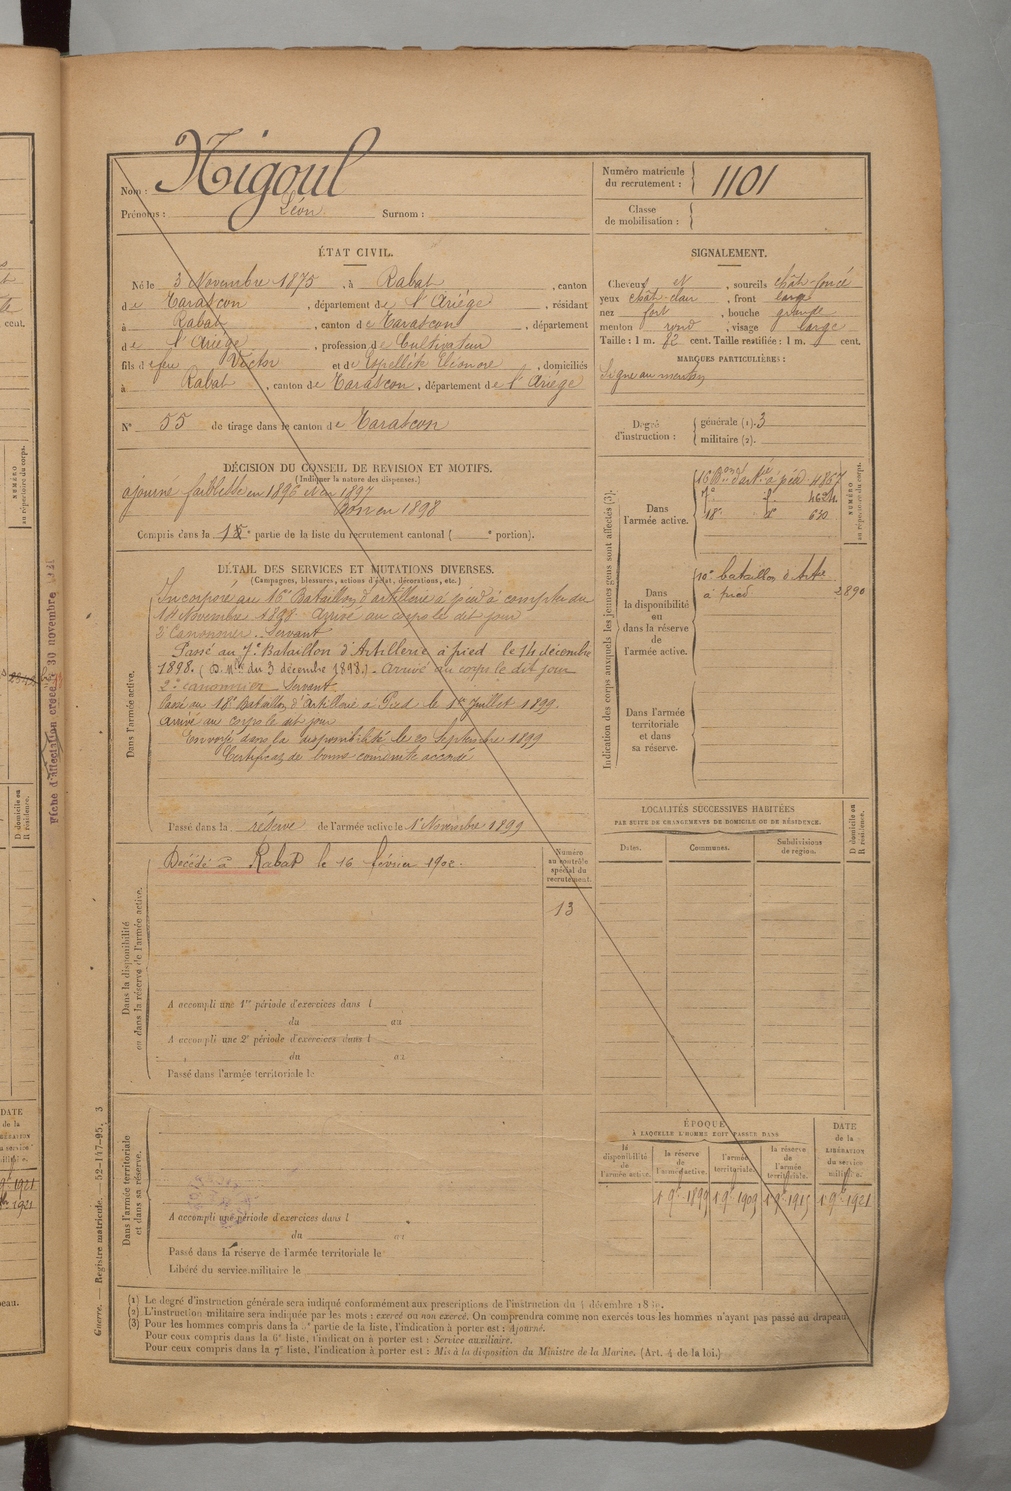 Nom : Nigoul
Prénoms : Léon Surnom :
Numéro matricule du recrutement : 1101
Classe de mobilisation :
ÉTAT CIVIL.
Né le 3 Novembre 1875, à Rabat, canton
de Tarascon, département de l'Ariége, résidant
à Rabat, canton de Tarascon, département
de l'Ariége, profession de Cultivateur
fils de feu Victor et de Espellék Eléonore, domiciliés
à Rabat, canton de Tarascon, département de l'Ariége
N° 55 de tirage dans le canton de Tarascon
SIGNALEMENT.
Cheveux N, sourcils chât. foncé
yeux chât. clair, front large
nez fort, bouche grande
menton rond, visage large
Taille : 1 m. 62 cent. Taille rectifiée : 1 m. cent.
MARQUES PARTICULIÈRES :
Signe au menton
Degré d'instruction : générale (1). 3
militaire (2).
DÉCISION DU CONSEIL DE REVISION ET MOTIFS.
(Indiquer la nature des dispenses.)
ajourné faiblesse en 1896 et en 1897
bon en 1898
Compris dans la 1e partie de la liste du recrutement cantonal ( e portion).
DÉTAIL DES SERVICES ET MUTATIONS DIVERSES.
(Campagnes, blessures, actions d'éclat, décorations, etc.)
Dans l'armée active.
Incorporé au 16e Bataillon d'artillerie à pied à compter du
14 Novembre 1898. Arrivé au corps le dit jour
2e Canonnier Servant
Passé au 7e Bataillon d'Artillerie à pied le 14 décembre
1898. (D. Mlle du 3 décembre 1898.) - Arrivé au corps le dit jour
2e canonnier Servant
Passé au 18e Bataillon d'Artillerie à Pied le 1er Juillet 1899.
arrivé au corps le dit jour
Envoyé dans la disponibilité le 20 Septembre 1899
Certificat de bonne conduite accordé
Passé dans la réserve de l'armée active le 1 Novembre 1899
Indication des corps auxquels les jeunes gens sont affectés (3).
NUMÉRO au répertoire du corps.
Dans l'armée active.
16 Bon d'artie à pied 4857
7e d° 4624
18e d° 630
Dans la disponibilité ou dans la réserve de l'armée active.
10e bataillon d'Artie
à pied 2890
Dans l'armée territoriale et dans sa réserve.
Dans la disponibilité ou dans la réserve de l'armée active.
Décédé à Rabat le 16 février 1902.
Numéro au contrôle spécial du recrutement.
13
A accompli une 1re période d'exercices dans l
du au
A accompli une 2e période d'exercices dans l
du au
Passé dans l'armée territoriale le
LOCALITÉS SUCCESSIVES HABITÉES
PAR SUITE DE CHANGEMENTS DE DOMICILE OU DE RÉSIDENCE.
Dates. Communes. Subdivisions de région.
D domicile ou R résidence.
Dans l'armée territoriale et dans sa réserve.
A accompli une période d'exercices dans l
du au
Passé dans la réserve de l'armée territoriale le
Libéré du service militaire le
ÉPOQUE
À LAQUELLE L'HOMME DOIT PASSER DANS
la disponibilité de l'armée active. la réserve de l'armée active. l'armée territoriale. la réserve de l'armée territoriale.
DATE de la LIBÉRATION du service militaire.
1 9bre 1899 1 9bre 1909 1 9bre 1915 1 9bre 1921
(1) Le degré d'instruction générale sera indiqué conformément aux prescriptions de l'instruction du 4 décembre
(2) L'instruction militaire sera indiquée par les mots : exercé ou non exercé. On comprendra comme non exercés tous les hommes n'ayant pas passé au drapeau.
(3) Pour les hommes compris dans la partie de la liste, l'indication à porter est : Ajourné.
Pour ceux compris dans la 6e liste, l'indication à porter est : Service auxiliaire.
Pour ceux compris dans la 7e liste, l'indication à porter est : Mis à la disposition du Ministre de la Marine. (Art. 4 de la loi.)
Guerre. — Registre matricule. — 52-147-95. 3
Fiche d'Affectation créée 30 novembre
NUMÉRO au répertoire du corps.
D domicile ou R résidence.
cent.
DATE
de la
LIBÉRATION
9bre 1921
1921